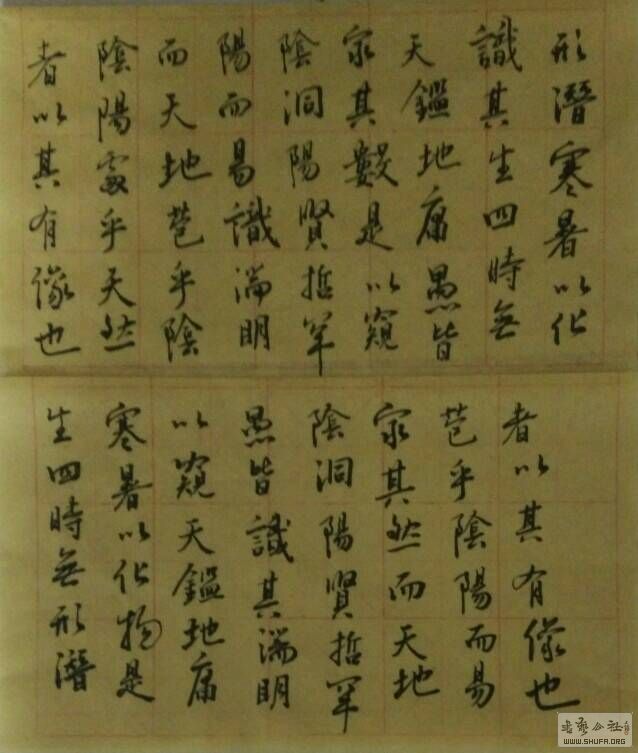 形潛寒暑以化
識其生四時無
天鑑地庸愚皆
窮其數是以窺
陰洞陽賢哲罕
陽而易識端明
而天地苞乎陰
陰陽處乎天然
者以其有像也
者以其有像也
苞乎陰陽而易
窮其然而天地
陰洞陽賢哲罕
愚皆識其端明
以窺天鑑地庸
寒暑以化物是
生四時無形潛
WWW.SHUFA.ORG